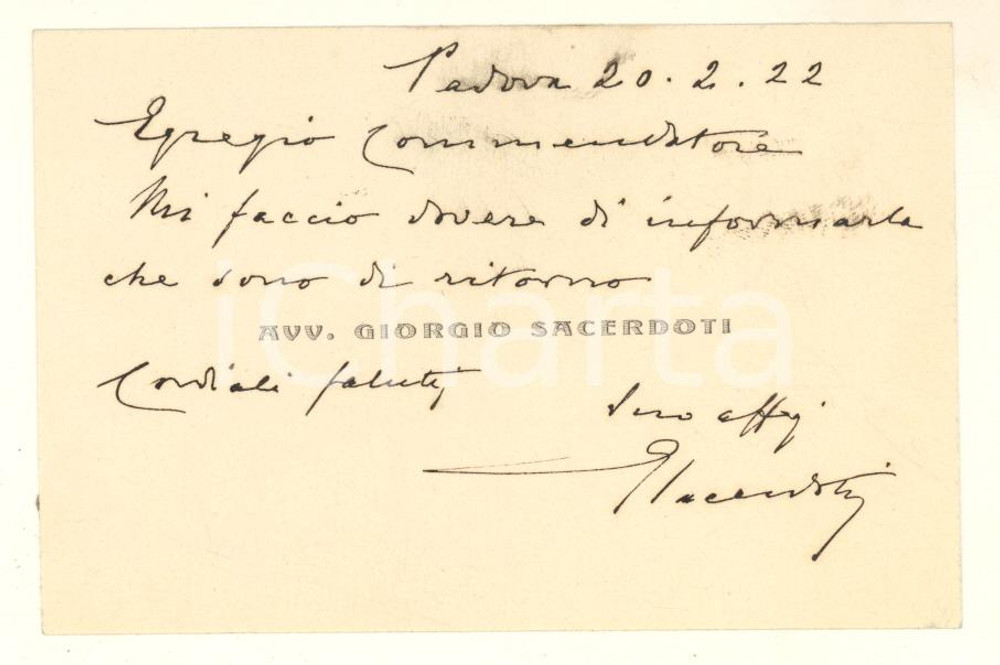 Padova 20.2.22
Egregio Commendatore
Mi faccio dovere di informarla
che sono di ritorno
iCharta
AVV. GIORGIO SACERDOTI
Cordiali saluti
Suo
GSacerdoti